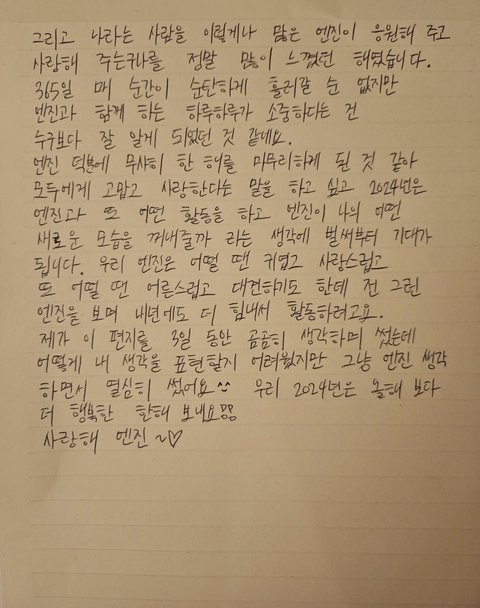 그리고 나라는 사람을 이렇게나 많은 엔진이 응원해 주고
사랑해 주는구나를 정말 많이 느꼈던 해였습니다.
365일 매 순간이 순탄하게 흘러갈 순 없지만
엔진과 함께 하는 하루하루가 소중하다는 건
누구보다 잘 알게 되었던 것 같네요.
엔진 덕분에 무사히 한 해를 마무리하게 된 것 같아
모두에게 고맙고 사랑한다는 말을 하고 싶고 2024년은
엔진과 또 어떤 활동을 하고 엔진이 나의 어떤
새로운 모습을 꺼내줄까 라는 생각에 벌써부터 기대가
됩니다. 우리 엔진은 어떨 땐 귀엽고 사랑스럽고
또 어떨 땐 어른스럽고 대견하기도 한데 전 그런
엔진을 보며 내년에도 더 힘내서 활동하려고요.
제가 이 편지를 3일 동안 곰곰히 생각하며 썼는데
어떻게 내 생각을 표현할지 어려웠지만 그냥 엔진 생각
하면서 열심히 썼어요^^ 우리 2024년은 올해 보다
더 행복한 한해 보내요
사랑해 엔진 ~♡